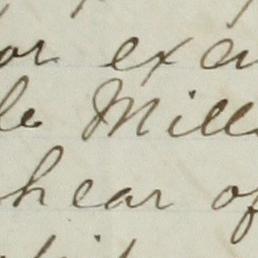 or exa
le Mill
hear of